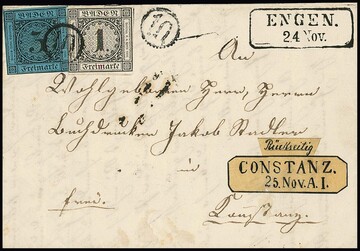 BADEN
3
Freimarke
BADEN
1
Freimarke
ENGEN.
24 Nov.
An
Wohlgeboren Herrn, Herrn
Buchdrucker Jakob Stadler
in
Constanz.
frei.
Rückseitig
CONSTANZ.
25. Nov. A. I.